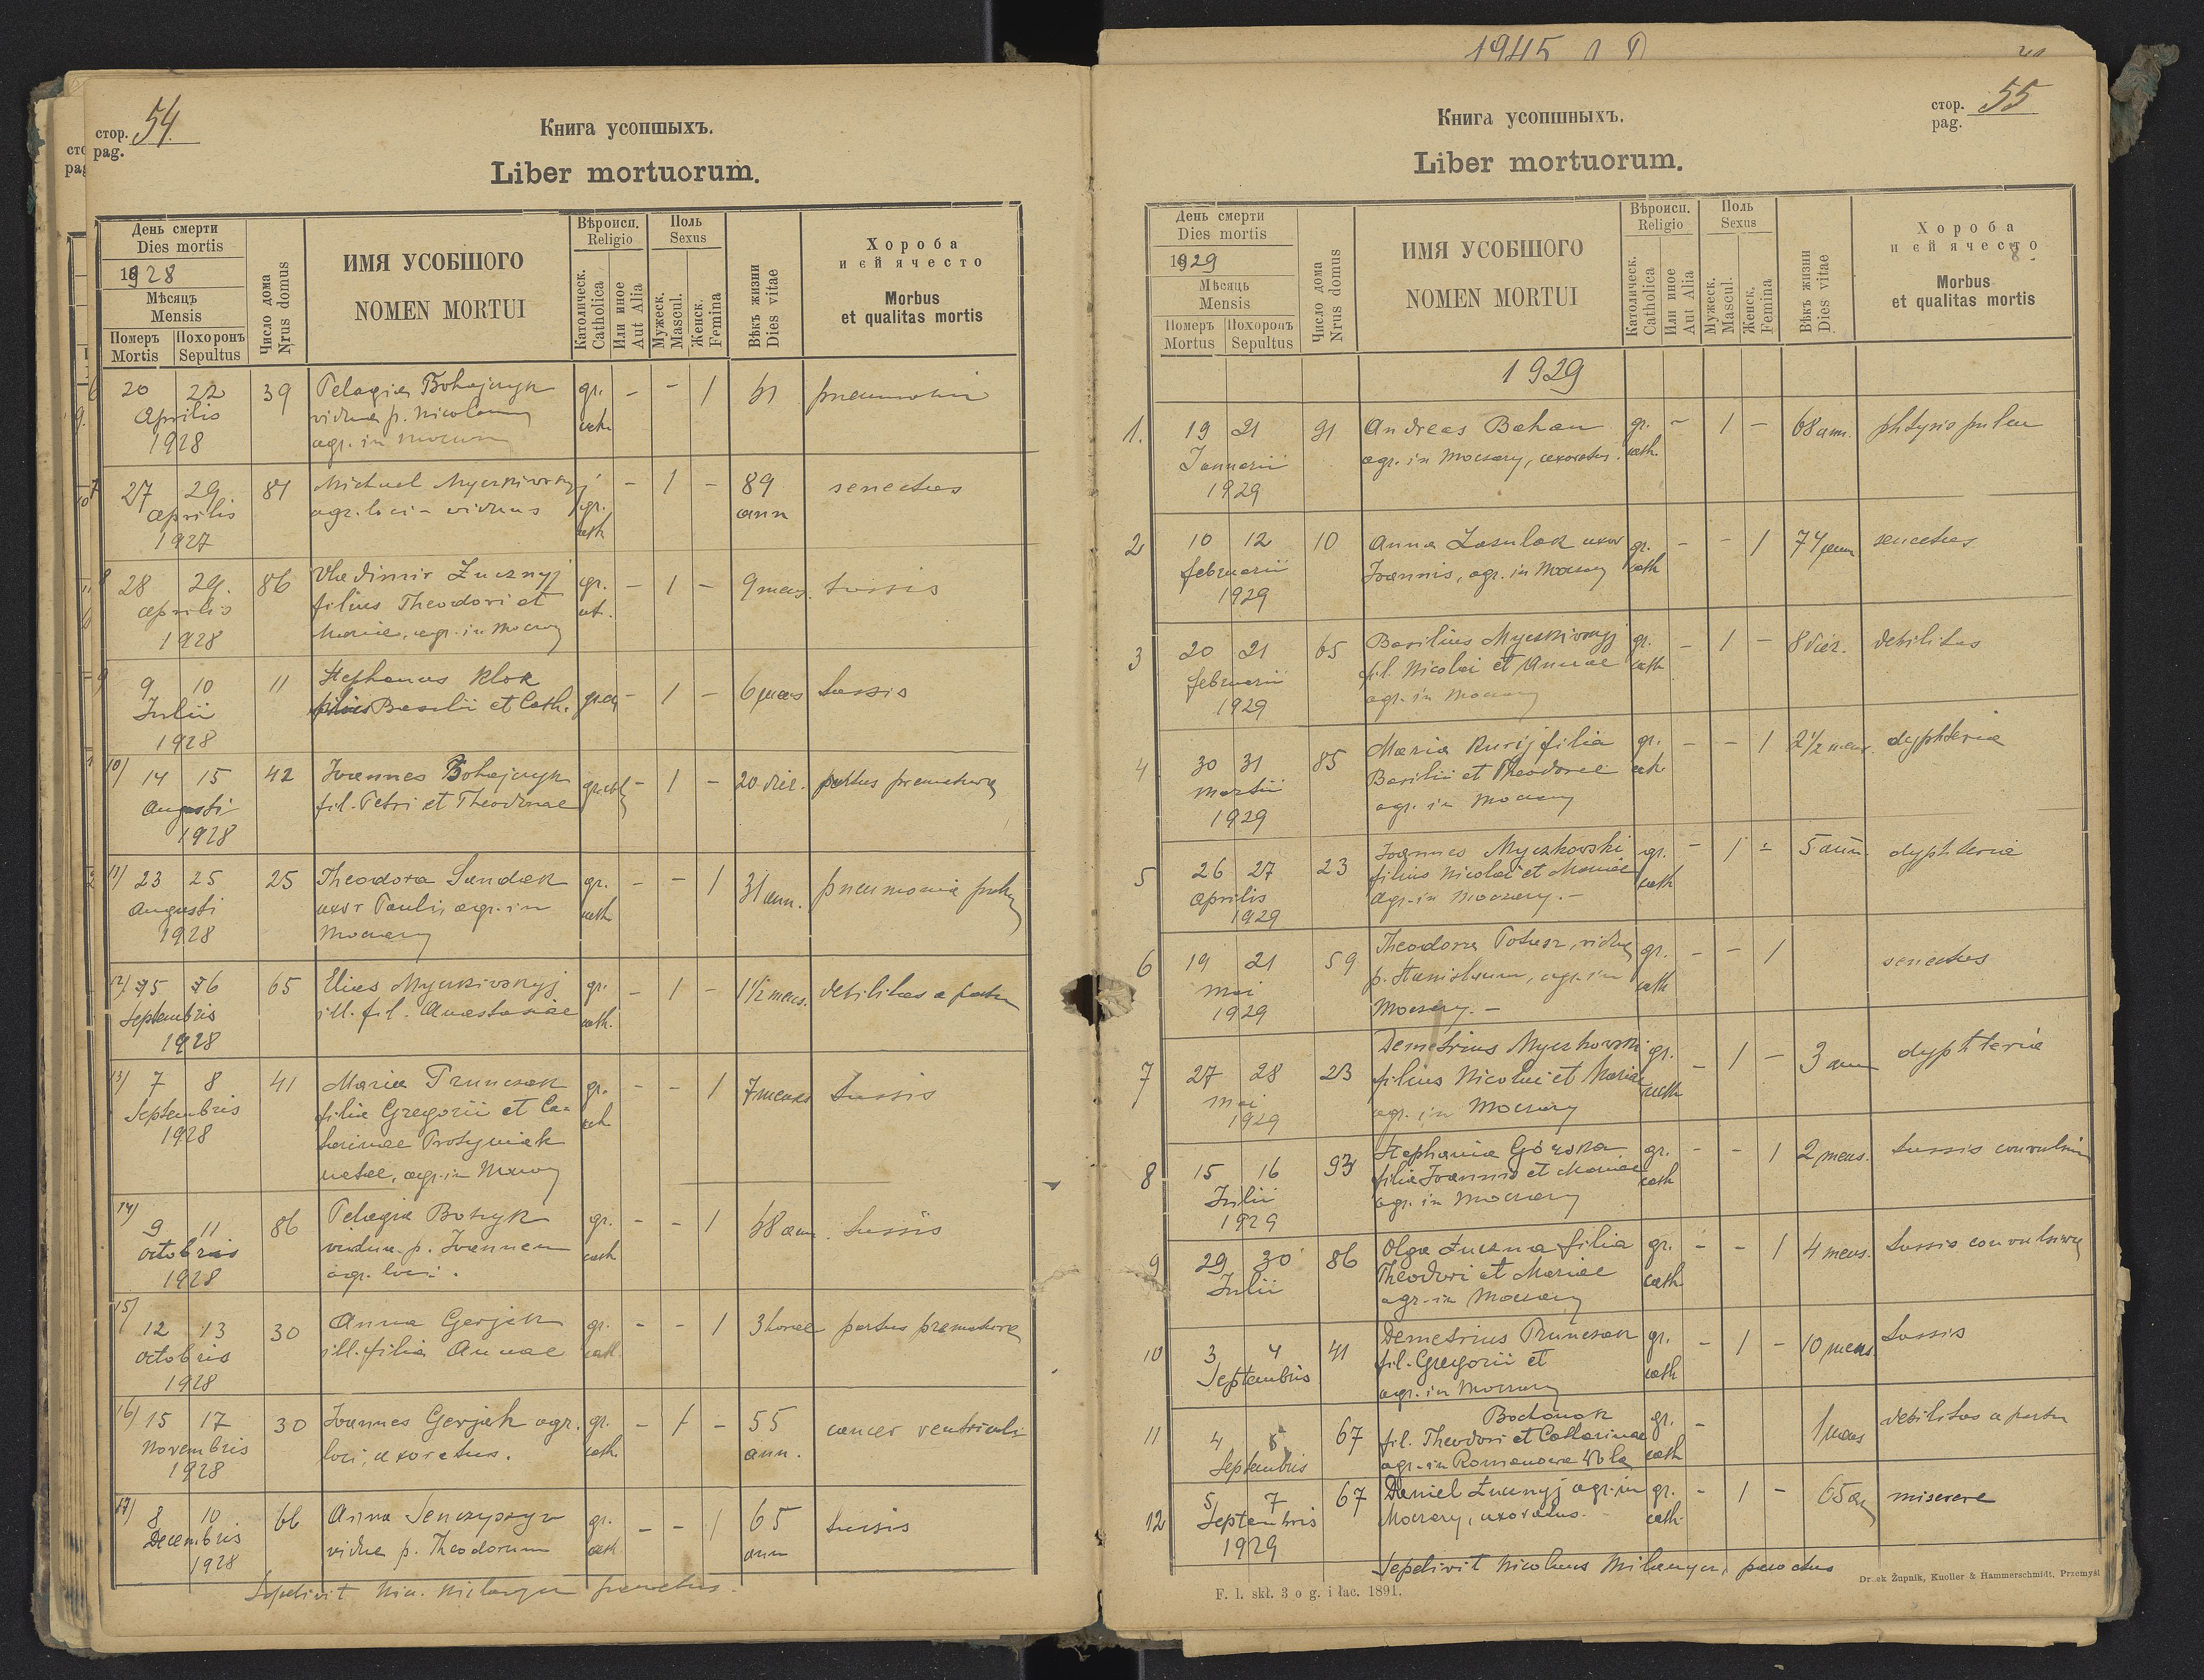 стор. 54.
pag.
Книга усопшыхъ.
Liber mortuorum.
День смерти
Dies mortis
1928
Мѣсяць
Mensis
Померъ Похоронъ
Mortis Sepultus
Число дома
Nrus domus
ИМЯ УСОБШОГО
NOMEN MORTUI
Вѣроисп.
Religio
Католическ.
Catholica
Или иное
Aut Alia
Поль
Sexus
Мужеск.
Mascul.
Женск.
Femina
Вѣкъ жизни
Dies vitae
Хороба
и єй ячесто
Morbus
et qualitas mortis
20 22 39 Pelagia Bohajczyk gr. - - 1
Aprilis vidua p. Nicolaum cath.
1928 agr. in
7 27 29 84 Michael - 1 - 89 senectus
Aprilis agr. loci - viduus gr. ann
1927 cath
8 28 29. 86 Vladimir Żucznyj gr. - 1 - 9 mens. tussis
Aprilis filius Theodori et cat.
1928 Mariae, agr. in Moczary
9 9 10 11 Stephanus Klok - 1 - 6 mens tussis
Julii filius Basilii et Cath.
1928
10) 14 15 42 Joannes Bohajczyk gr. cat - 1 - 20 dier. partus praematurus
Augusti fil. Petri et Theodorae
1928
11) 23 25 25 Theodora Sandak gr. - - 1 31 ann. pneumonia
Augusti uxor Pauli, agr. in cath
1928 Moczary
12) 65 Elias gr. - 1 - 1 1/2 mens. debilitas a partu
Septembris ill. fil. Anastasiae cath.
1928
13) 7 8 41 Maria Pruncsak gr. - - 1 7 menses tussis
Septembris filia Gregorii et Ca- cath
1928 tarinae Protyniak
natae, agr. in Moczary
14) 9 11 86 Pelagia gr. - - 1 68 ann. tussis
Octobris vidua p. Joannem cath
1928 agr. loci.
15) 12 13 30 Anna Gerjak gr. - - 1 3 horae partus praematura
Octobris ill. filia Annae cath.
1928
16) 15 17 30 Joannes Gerjak agr. gr. - 1 - 55 cancer ventriculi
Novembris loci, uxoratus. cath. ann.
1928
17) 8 10 66 Anna gr. - - 1 65 tussis
Decembris vidua p. Theodorum cath. ann
1928
Sepelivit Nic. parochus.
1945
стор. 55
pag.
Книга усопшныхъ.
Liber mortuorum.
День смерти
Dies mortis
1929
Мѣсяць
Mensis
Померъ Похоронъ
Mortus Sepultus
Число дома
Nrus domus
ИМЯ УСОБШОГО
NOMEN MORTUI
Вѣроисп.
Religio
Католическ.
Catholica
Или иное
Aut Alia
Поль
Sexus
Мужеск.
Mascul.
Женск.
Femina
Вѣкъ жизни
Dies vitae
Хороба
и єй ячесто
Morbus
et qualitas mortis
1929
1. 19 21 91 Andreas Bahan gr. - 1 - 68 ann.
Januarii agr. in Moczary, uxoratus. cath.
1929
2 10 12 10 Anna uxor gr. - - 1 74 ann senectus
februarii Joannis, agr. in Moczary cath
1929
3 20 21 65 Basilius gr. - 1 - 8 dier. debilitas
februarii fil. Nicolai et Annae cath
1929 agr. in Moczary
4 30 31 85 Maria Kurij filia gr. - - 1 2 1/2 mens. dyphteria
Martii Basilii et Theodorae cath
1929 agr. in Moczary
5 26 27 23 Joannes Myczkowski gr. - 1 - 5 ann. dyphteria
Aprilis filius Nicolai et Mariae cath
1929 agr. in Moczary. -
6 19 21 59 Theodora vidua gr. - - 1 senectus
Mai p. Stanislaum, agr. in cath
1929 Moczary. -
7 27 28 23 Demetrius Myczkowski gr. - 1 - 3 ann dyphteria
Mai filius Nicolai et Mariae cath
1929 agr. in Moczary
8 15 16 93 Stephania Górska gr. - - 1 2 mens. tussis
Julii filia Joannis et Mariae cath
1929 agr. in Moczary
9 29 30 86 Olga Żuczna filia gr. - - 1 4 mens. tussis convulsiva
Julii Theodori et Mariae cath
agr. in Moczary
10 3 4 41 Demetrius Pruncsak gr. - 1 - 10 mens tussis
Septembris fil. Gregorii et cath
agr. in Moczary
11 4 67 Bochonok gr. - 1 mens debilitas a partu
Septembris fil. Theodori et Catharinae cath
agr. in Romanowa Wola
12 5 7 67 Daniel Żucznyj agr. in gr. - 1 - 65 miserere
Septembris Moczary, uxoratus. cath.
1929
Sepelivit Nicolaus parochus
F. l. skł. 3 o g. i łac. 1891.
Druck Żupnik, Knoller & Hammerschmidt, Przemyśl